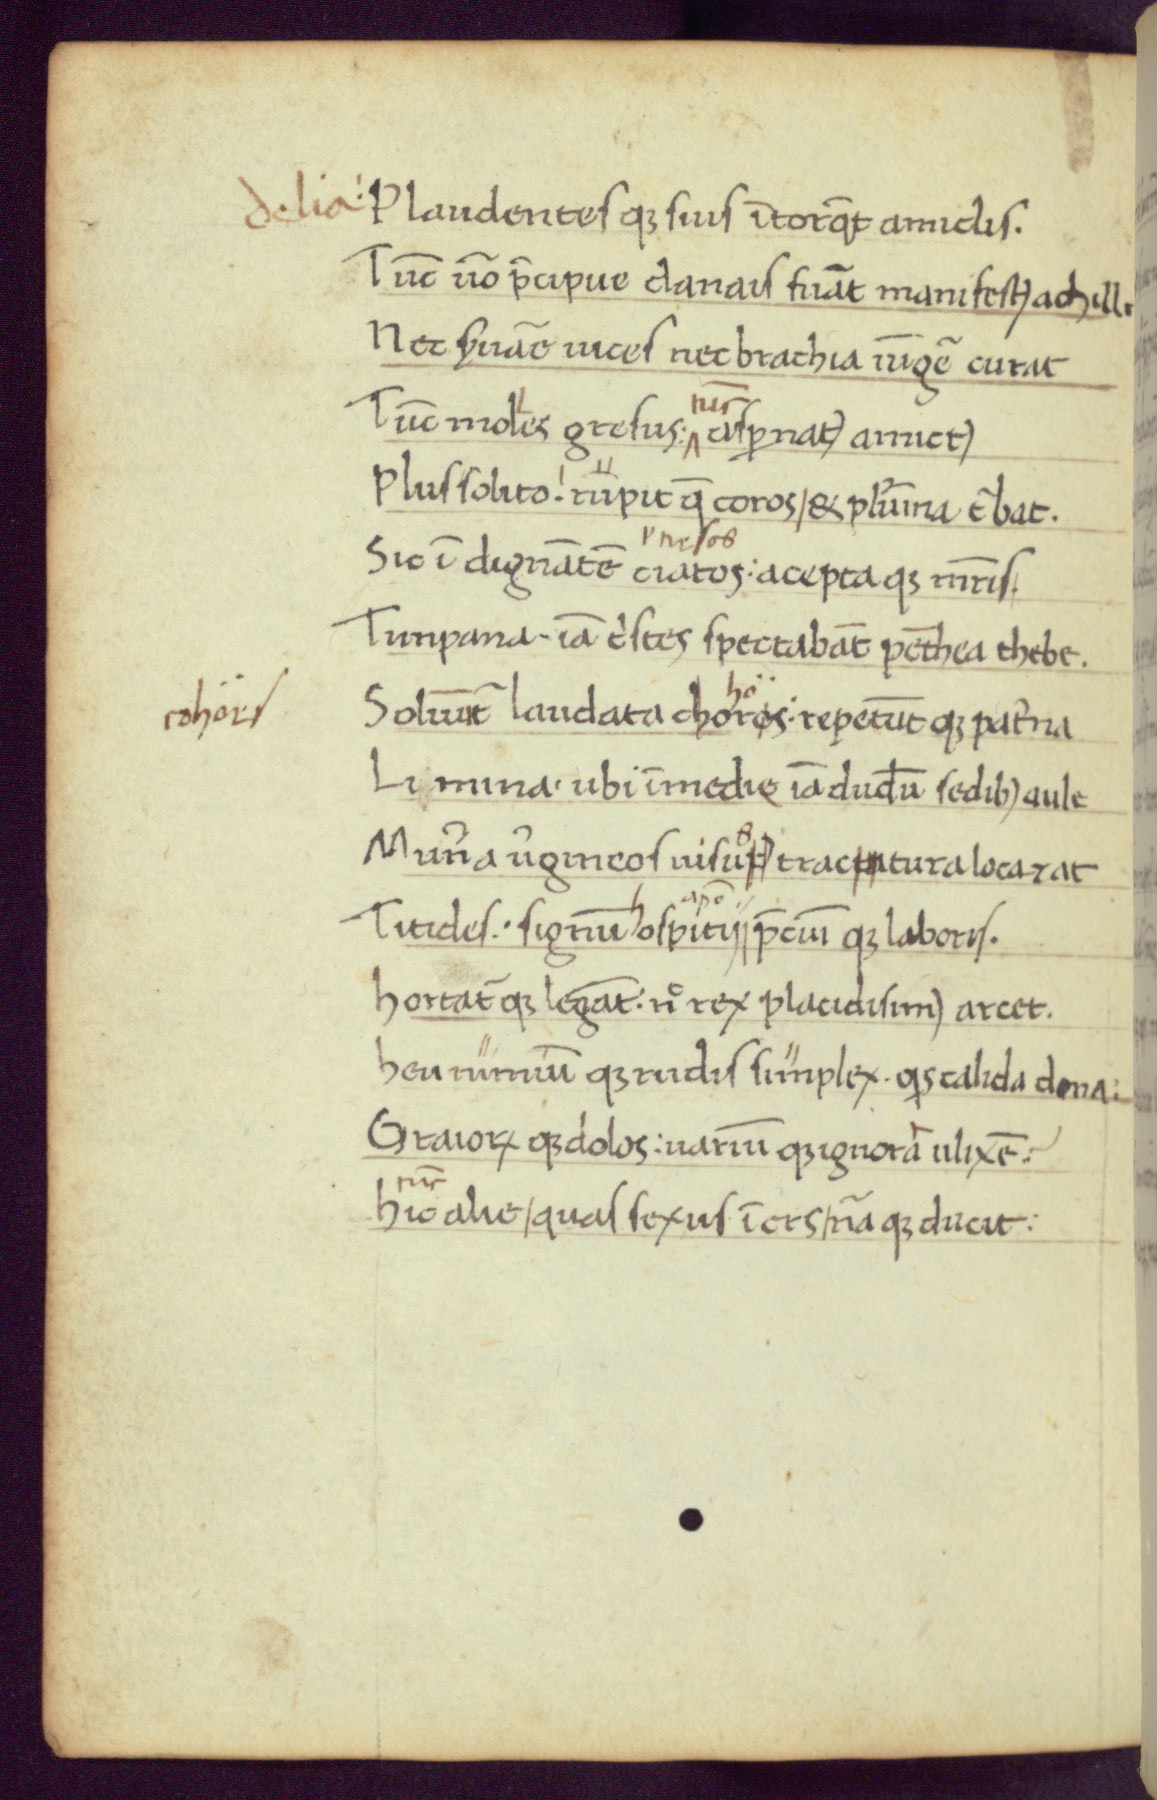 delia: Plaudentes qȝ suis ītorq̄t amiclis.
Tūc ūo p̄cipue danais fuāt manifest) achill.
Nec s̄uāe uices nec brachia iūgē curat
tūc
Tūc molles gresus: aspnat) amict)
Plus solito! rūpit q̄ coros / & plūīma t̄bat.
Sic ī dignātē ciatos: acepta qȝ mr̄īs.
Timpana - iā t'stes spectabāt pēthea thebe.
cohörs Soluūt̄ laudata choros: repetūt qȝ pat̄na
Limina. ubi īmedie iā dudū sedib) aule
Mun̄a ūgineos uisus tractatura locarat
Titides. signū hospitij p̄ciū qȝ laboris.
hortat̄ qȝ legāt: n̊ rex placidisim) arcet.
heu nimiū qȝ rudis simplex. qs calida dona:
Graiorꝝ qȝ dolos: uariū qȝ ignorā ulixē:
hic alie / quas sexus īers / nā qȝ ducit: